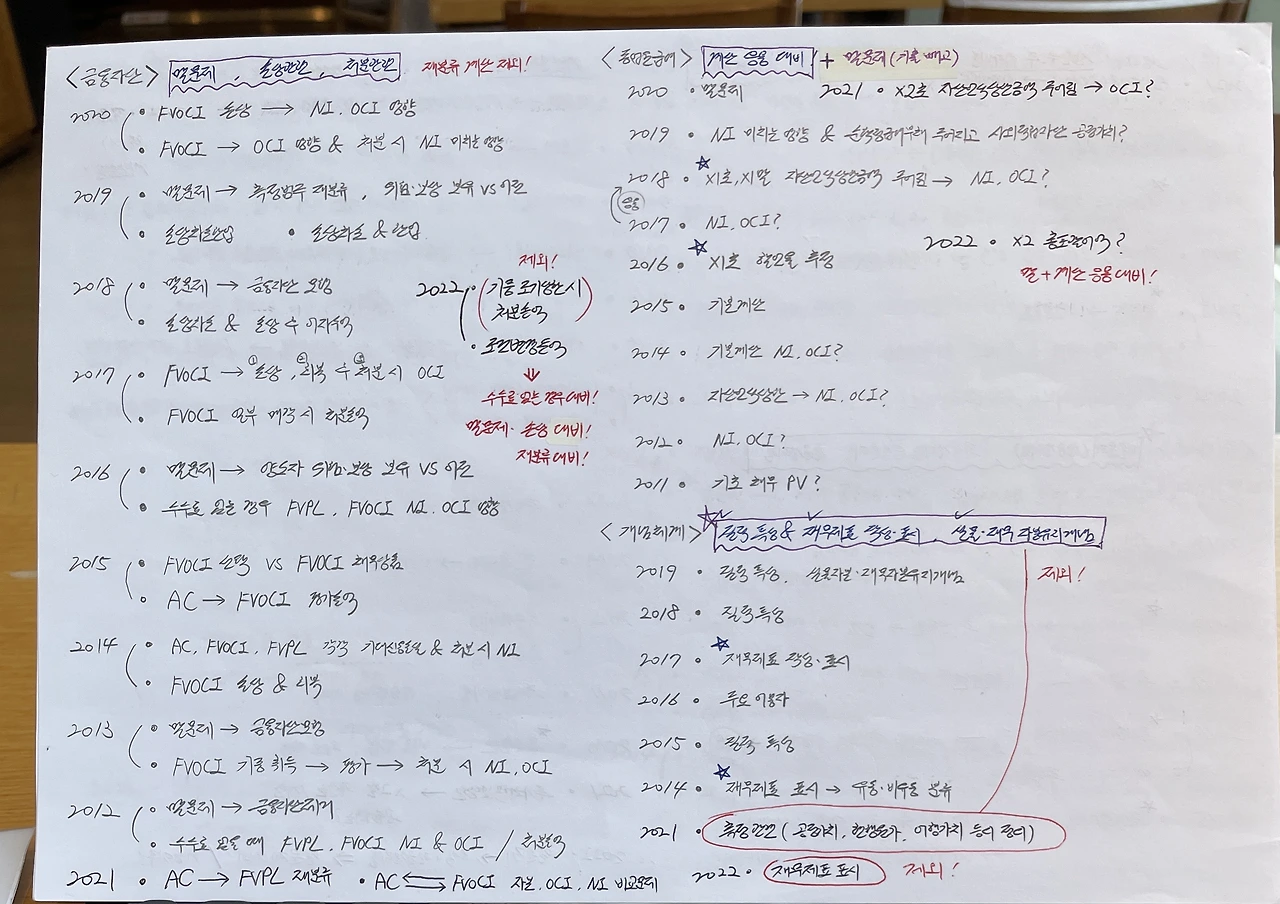 <금융자산> 말문제, 손상관련, 처분관련 재분류 계산 제외!
2020 • FVOCI 손상 ⟺ NI, OCI 영향
• FVOCI → OCI 영향 & 처분 시 NI 미치는 영향
2019 • 말문제 → 측정범주 재분류, 위험·보상 보유 VS 이전
• 손상차손환입 • 손상차손 & 환입
2018 • 말문제 → 금융자산 모형
• 손상차손 & 손상 후 이자수익
2017 • FVOCI → ①손상, ②회복 후 ③처분 시 OCI
• FVOCI 일부 매각 시 처분손익
제외!
2022 • (기중 로기 시 처분손익)
• 조건변경손익
⇓
수수료 있는 경우 대비!
말문제·손상 대비!
재분류 대비!
2016 • 말문제 → 양도자 위험·보상 보유 VS 이전
• 수수료 있는 경우 FVPL, FVOCI NI, OCI 영향
2015 • FVOCI 선택 VS FVOCI 채무상품
• AC → FVOCI 평가손익
2014 • AC, FVOCI, FVPL 각각 기대신용손실 & 처분 시 NI
• FVOCI 손상 & 회복
2013 • 말문제 → 금융자산모형
• FVOCI 기중 취득 → 평가 → 처분 시 NI, OCI
2012 • 말문제 → 금융자산제거
• 수수료 있을 때 FVPL, FVOCI NI & OCI / 처분손익
2021 • AC → FVPL 재분류 • AC ⟺ FVOCI 자본, OCI, NI 비교문제
<종업원급여> 계산 응용 대비 + 말문제 (기출 빼고)
2020 • 말문제 2021 • X2초 자산인식상한금액 주어짐 → OCI?
2019 • NI 미치는 영향 & 순확정급여부채 주어지고 사외적립자산 공정가치?
2018 • ☆ X1초, X1말 자산인식상한금액 주어짐 → NI, OCI?
응용
2017 • NI, OCI?
2016 • ☆ X1초 할인율 측정
2022 • X2 총포괄이익?
말 + 계산 응용 대비!
2015 • 기본계산
2014 • 기본계산 NI, OCI?
2013 • 자산인식상한 → NI, OCI?
2012 • NI, OCI?
2011 • 기초 채무 PV?
<개념체계> ☆ 질적 특성 & 재무제표 작성·표시, 실물·재무 자본유지개념
2019 • 질적 특성, 실물자본·재무자본유지개념 제외!
2018 • 질적 특성
2017 • ☆ 재무제표 작성·표시
2016 • 주요 이용자
2015 • 질적 특성
2014 • ☆ 재무제표 표시 → 유동·비유동 분류
2021 • 측정관련 (공정가치, 현행원가, 이행가치 등의 정의)
2022 • 재무제표 표시 제외!